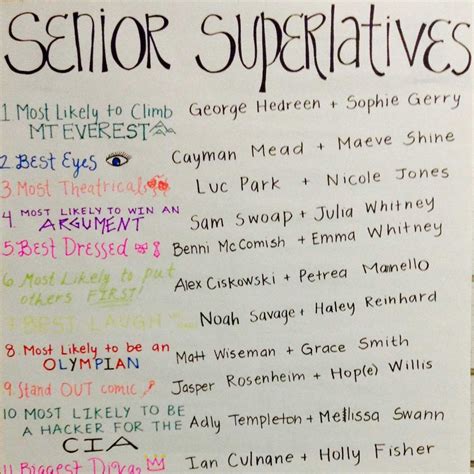 SENIOR SUPERlATIVES
1 Most Likely to Climb
MT EVEREST
George Hedreen + Sophie Gerry
2. Best Eyes
Cayman Mead + Maeve Shine
3. Most Theatrical
Luc Park + Nicole Jones
4. MOST LIKELY TO WIN AN
ARGUMENT
Sam Swoap + Julia Whitney
5. Best Dressed
Benni McComish + Emma Whitney
6. Most Likely to put
others FIRST!
Alex Ciskowski + Petrea Mamello
7 BEST LAUGH
Noah Savage + Haley Reinhard
8. Most Likely to be an
OLYMPIAN
Matt Wiseman + Grace Smith
9. Stand OUT comic
Jasper Rosenheim + Hop(e) Willis
10 MOST LIKELY TO BE
A HACKER FOR THE
CIA
Adly Templeton + Mellissa Swann
11 Biggest Divas
Ian Culnane + Holly Fisher